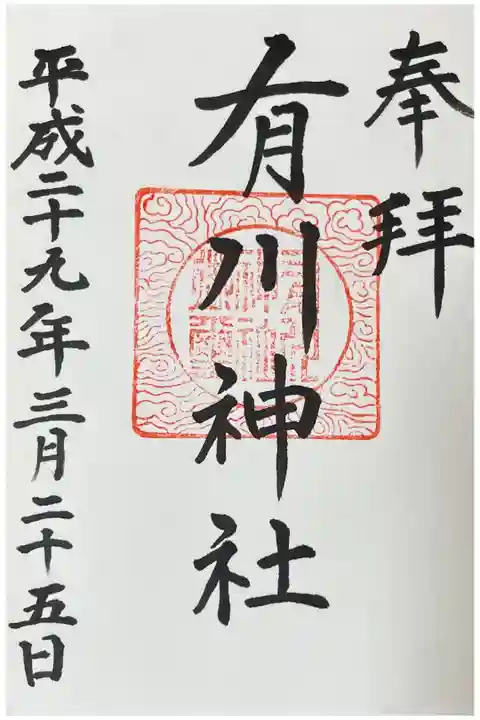 奉拜
有川神社
平成二十九年三月二十五日